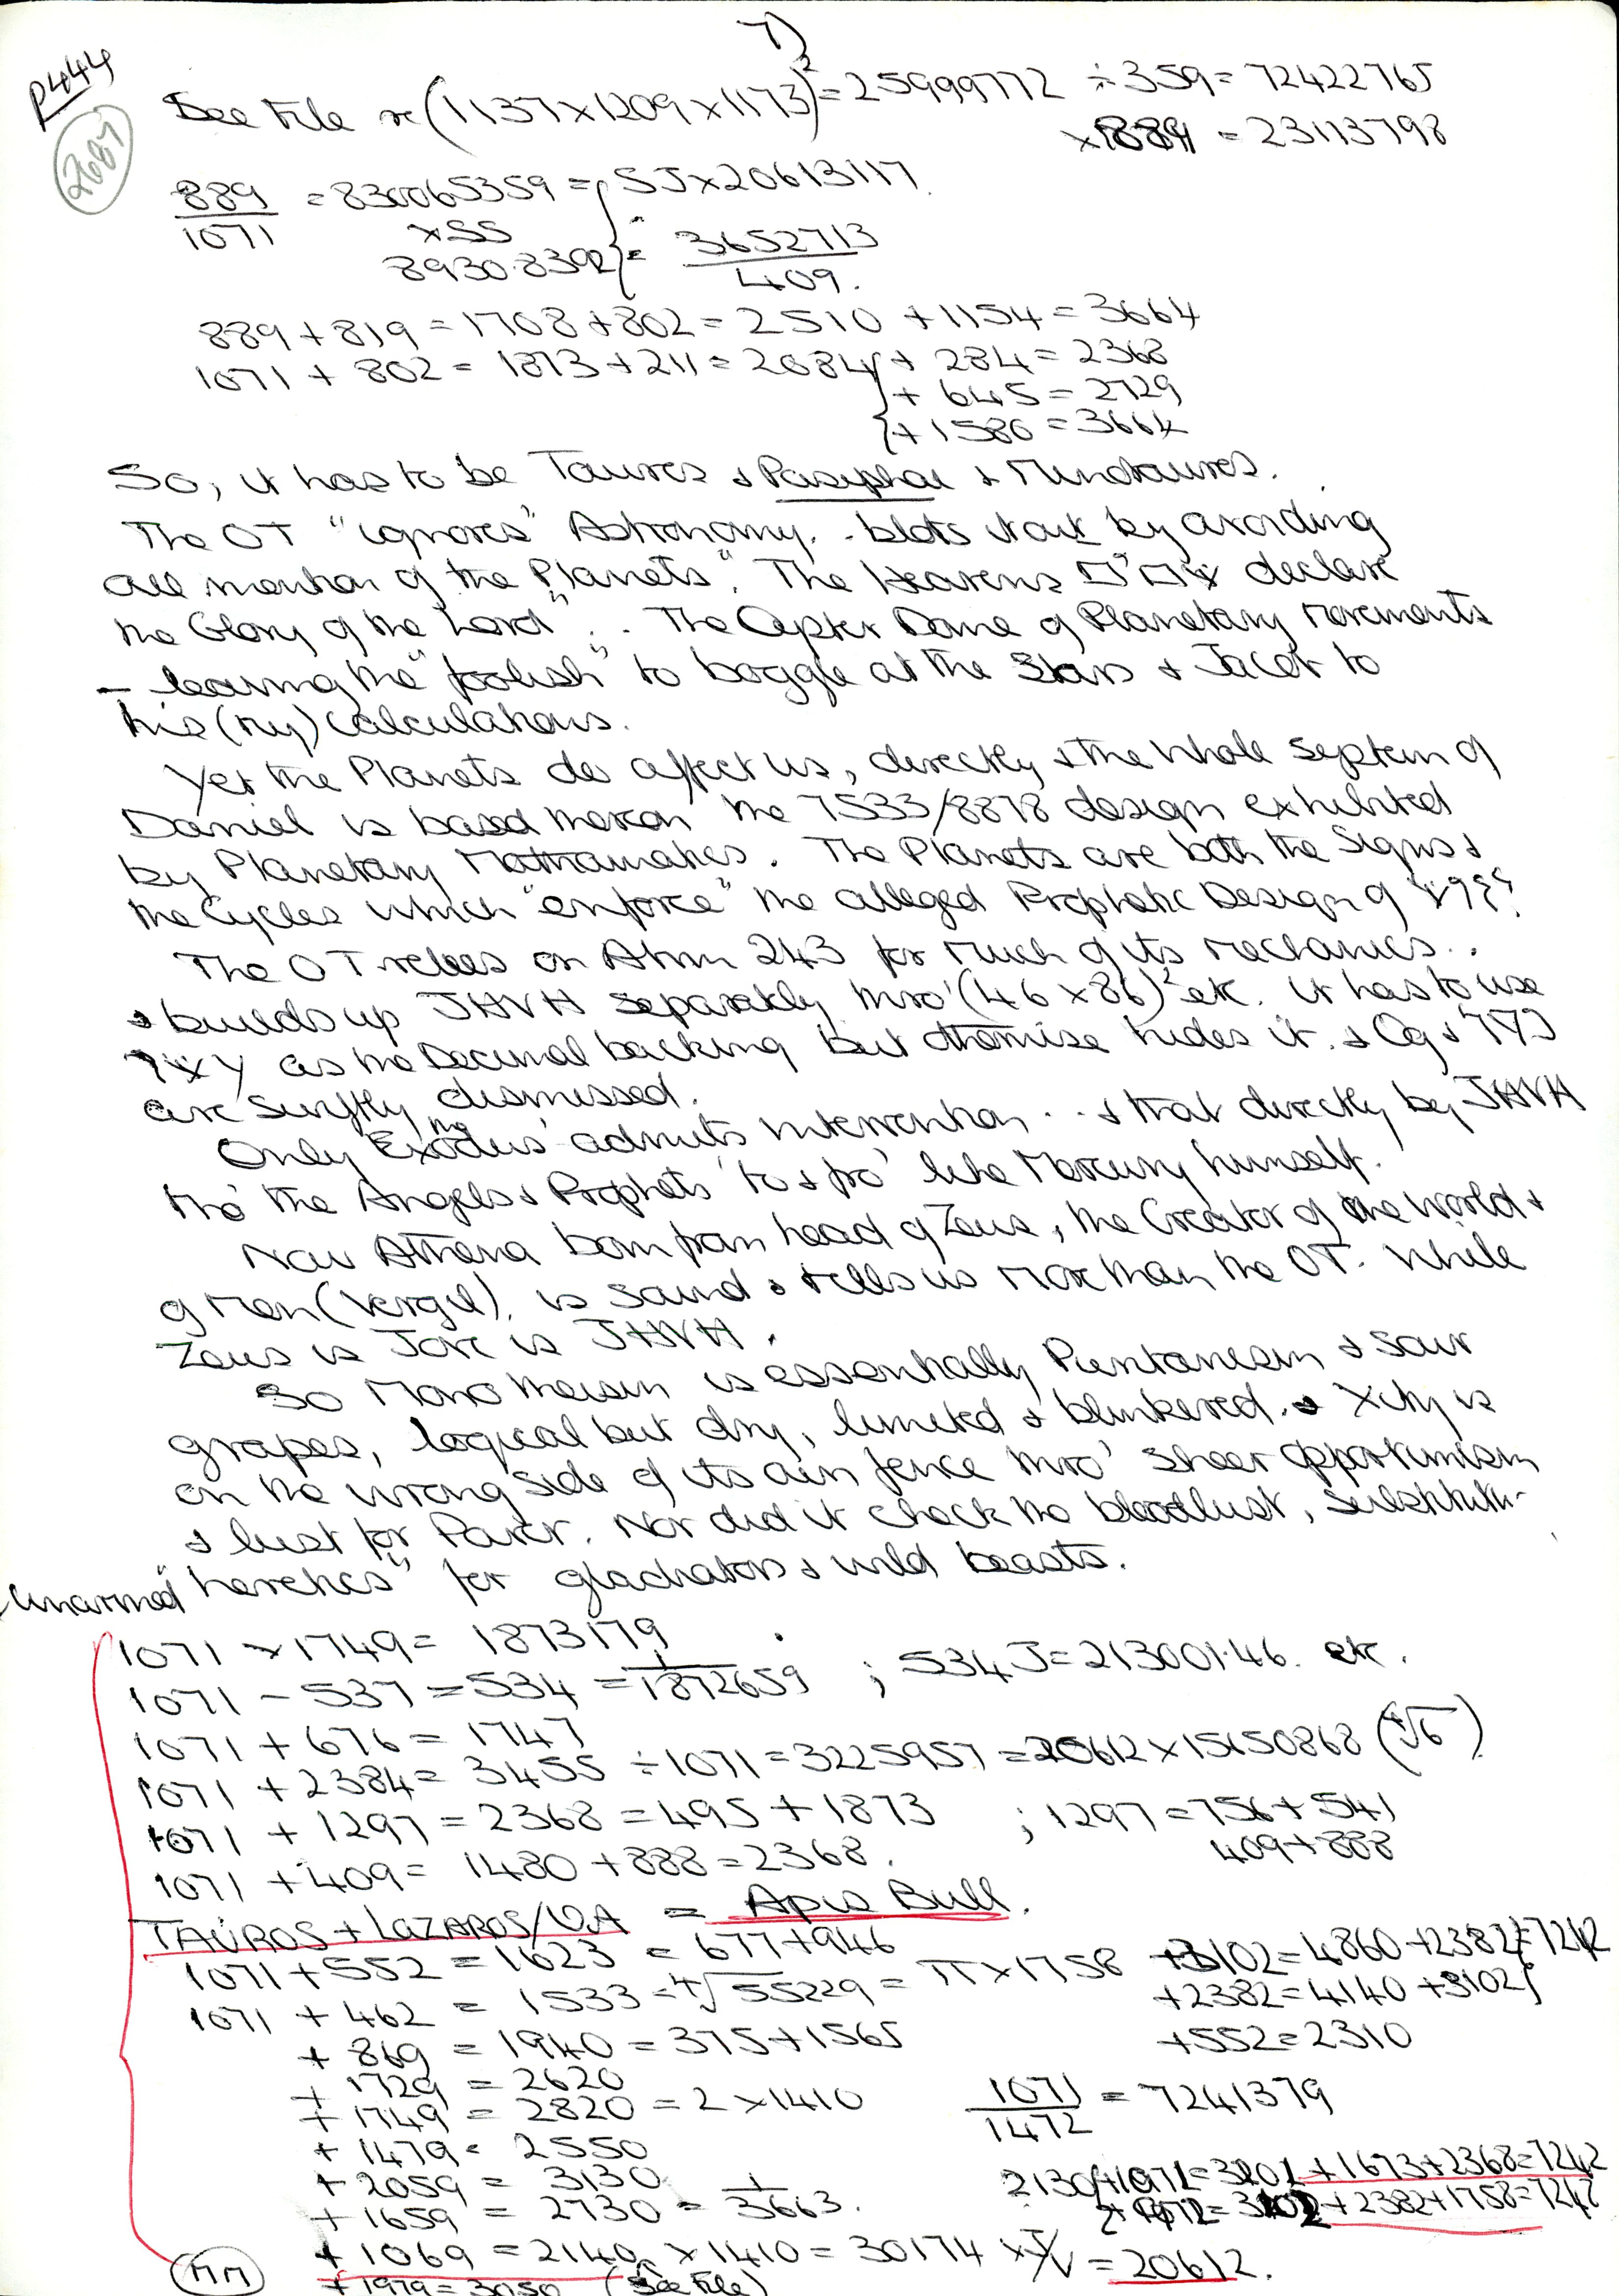 7)
P444
2687
See File re (1137×1209×1173)² = 25999772 ÷ 359 = 72422765
×889 = 23113798
889/1071 = 830065359 = SJ×20613117
×SS
8930.8392 = 3652713/409.
889 + 819 = 1708 + 802 = 2510 + 1154 = 3664
1071 + 802 = 1873 + 211 = 2084 + 284 = 2368
+ 645 = 2729
+ 1580 = 3664
So, it has to be Tauros & Pasiphae & Minotauros.
The OT "ignores" Astronomy . . blots it out by avoiding
all mention of the Planets". The Heavens declare
the Glory of the Lord" . . The Copter Dome of Planetary Movements
– leaving the "foolish" to boggle at the Stars & Jacob to
his (my) calculations.
Yet the Planets do affect us, directly & the whole system of
Daniel is based thereon the 7533/8878 design exhibited
by Planetary Mathematics. The Planets are both the Signs &
the Cycles which "enforce" the alleged Prophetic Design of
The OT relies on Atm 243 for much of its mechanics . .
& builds up JHVH separately thro' (46×86)² etc. it has to use
as the Decimal backing but otherwise hides it. & Og &
are swiftly dismissed.
Only 'Exodus' admits intervention . . & that directly by JHVH
tho' the Angels & Prophets 'to & fro' like Mercury himself.
Now Athena born from head of Zeus, the Creator of the World &
of Men (Vergil), is sound & tells us more than the OT. While
Zeus is Jove is JHVH.
So Monotheism is essentially Puritanism & sour
grapes, logical but dry, limited & blinkered. & Xity is
on the wrong side of its own fence thro' sheer opportunism
& lust for Power. Nor did it check the bloodlust,
unarmed "heretics" for gladiators & wild beasts.
1071 × 1749 = 1873179
1071 – 537 = 534 = 1/1872659 ; 534J = 213001.46. etc.
1071 + 676 = 1747
1071 + 2384 = 3455 ÷ 1071 = 3225957 = 20612×15650868 (∜6)
1071 + 1297 = 2368 = 495 + 1873 ; 1297 = 756 + 541
1071 + 409 = 1480 + 888 = 2368. 409 + 888
TAUROS + LAZAROS/O.A = Apis Bull.
1071 + 552 = 1623 = 677 + 946
1071 + 462 = 1533 = ∜55229 = π×1758 + 3102 = 4860 + 2382 = 7242
+ 2382 = 4140 + 3102
+ 869 = 1940 = 375 + 1565 + 552 = 2310
+ 1729 = 2620
+ 1749 = 2820 = 2×1410 1071/1472 = 7241379
+ 1479 = 2550
+ 2059 = 3130 2130 + 1071 = 3201 + 1673 + 2368 = 7242
+ 1659 = 2730 = 1/3663. + 972 = 3102 + 2382 + 1758 = 7242
+ 1069 = 2140 × 1410 = 30174 × J/V = 20612.
+ 1979 = 3050 (See File)
MM